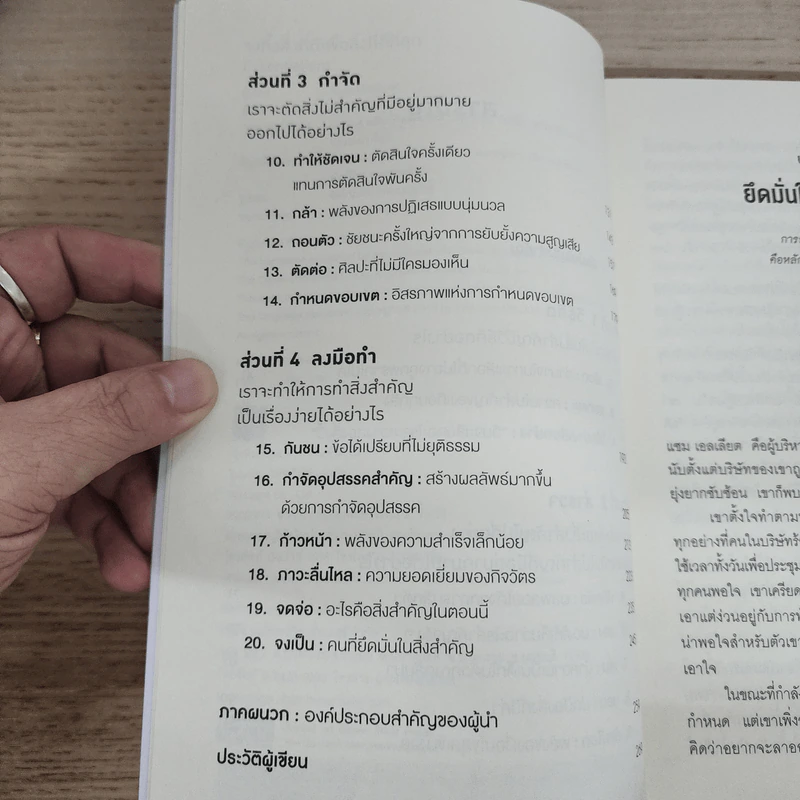 ส่วนที่ 3 กำจัด
เราจะตัดสิ่งไม่สำคัญที่มีอยู่มากมาย
ออกไปได้อย่างไร
10. ทำให้ชัดเจน : ตัดสินใจครั้งเดียว
แทนการตัดสินใจพันครั้ง
11. กล้า : พลังของการปฏิเสธแบบนุ่มนวล
12. ถอนตัว : ชัยชนะครั้งใหญ่จากการยับยั้งความสูญเสีย
13. ตัดต่อ : ศิลปะที่ไม่มีใครมองเห็น
14. กำหนดขอบเขต : อิสรภาพแห่งการกำหนดขอบเขต
ส่วนที่ 4 ลงมือทำ
เราจะทำให้การทำสิ่งสำคัญ
เป็นเรื่องง่ายได้อย่างไร
15. กันชน : ข้อได้เปรียบที่ไม่ยุติธรรม
16. กำจัดอุปสรรคสำคัญ : สร้างผลลัพธ์มากขึ้น
ด้วยการกำจัดอุปสรรค
17. ก้าวหน้า : พลังของความสำเร็จเล็กน้อย
18. ภาวะลื่นไหล : ความยอดเยี่ยมของกิจวัตร
19. จดจ่อ : อะไรคือสิ่งสำคัญในตอนนี้
20. จงเป็น : คนที่ยึดมั่นในสิ่งสำคัญ
ภาคผนวก : องค์ประกอบสำคัญของผู้นำ
ประวัติผู้เขียน
ยึดมั่นใ
การ
คือหลัก
แซม เอลเลียต คือผู้บริหา
นับตั้งแต่บริษัทของเขาถู
ยุ่งยากซับซ้อน เขาก็พบ
เขาตั้งใจทำตาม
ทุกอย่างที่คนในบริษัทร้
ใช้เวลาทั้งวันเพื่อประชุม
ทุกคนพอใจ เขาเครียด
เอาแต่ง่วนอยู่กับการทำ
น่าพอใจสำหรับตัวเขา
เอาใจ
ในขณะที่กำลัง
กำหนด แต่เขาเพิ่ง
คิดว่าอยากจะลาออ